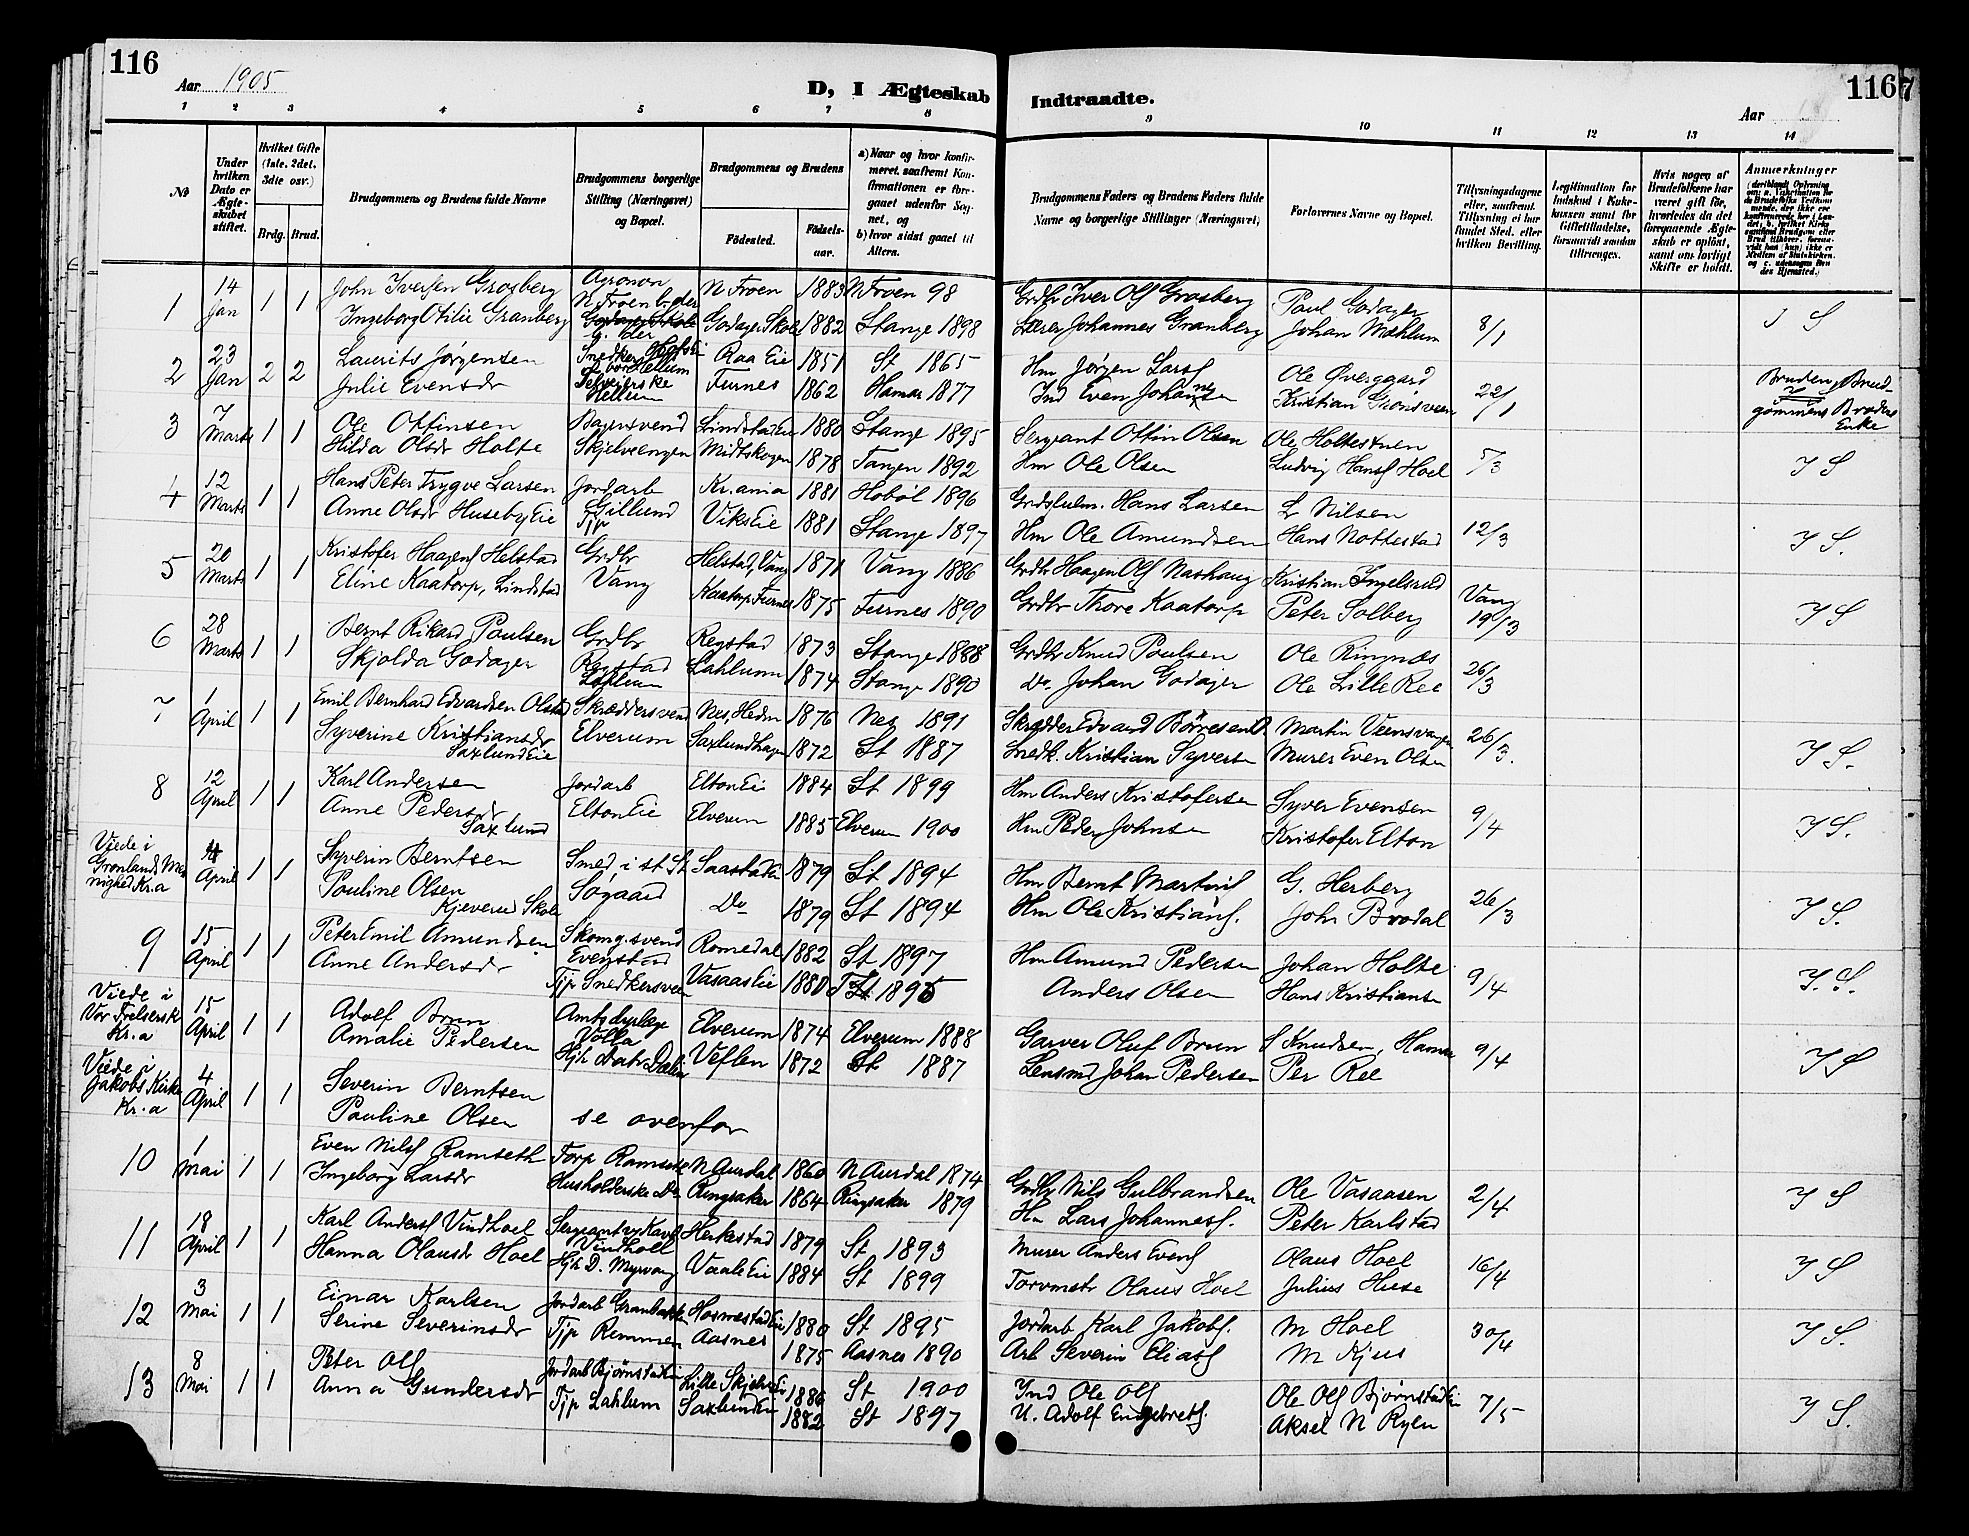 116
Aar 1905
D, I Ægteskab Indtraadte.
Aar
116
7
1 2 3 4 5 6 7 8 9 10 11 12 13 14
No
Under hvilken Dato er Ægteskabet stiftet.
Hvilket Gifte (1ste, 2det, 3die osv.)
Brdg. Brud.
Brudgommens og Brudens fulde Navne
Brudgommens borgerlige Stilling (Næringsvei) og Bopæl.
Brudgommens og Brudens
Födested.
Födselsaar.
a) Naar og hvor konfirmeret, saafremt Konfirmationen er foregaaet udenfor Sognet, og
b) hvor sidst gaaet til Alters.
Brudgommens Faders og Brudens Faders fulde Navne og borgerlige Stillinger (Næringsvei)
Forlovernes Navne og Bopæl.
Tillysningsdagene eller, saafremt Tillysning ei har fundet Sted, efter hvilken Bevilling.
Legitimation for Indskud i Enkekassen samt for Giftetilladelse, forsaavidt saadan tiltrænges.
Hvis nogen af Brudefolkene har været gift för, hvorledes da det foregaaende Ægteskab er oplöst, samt om lovligt Skifte er holdt.
Anmærkninger
1 14 Jan 1 1 John Iversen Grosberg Agronom N. Froen N Froen 1883 N Froen 98 Grdbr Iver Ols Grosberg Paul Godager 8/1 I S
Ingeborg Otilie Granberg Godager Skole 1882 Stange 1898 Lærer Johannes Granberg Johan Mæhlum
2 23 Jan 2 2 Laurits Jørgensen Snedker Raa Eie 1851 St 1865 Hm Jørgen Lars Ole Øvergaard 22/1 Bruden Brudgommens Broders Enke
Julie Evensdr Hellum Furnes 1862 Hamar 1877 Ind Even Johansen Kristian Grønsveen
3 7 Marts 1 1 Ole Ottinsen Bagersvend Lindstad Eie 1880 Stange 1895 Sergeant Ottin Olsen Ole Holtestuen 5/3 I S
Hilda Olsdr Holte Skjelveengen Midtskogen 1878 Tangen 1892 Hm Ole Olsen Ludvig Hans Hoel
4 12 Marts 1 1 Hans Peter Trygve Larsen Jordarb Gillund Kr.ania 1881 Hobøl 1896 Grdsfuldm. Hans Larsen L Nilsen 12/3 I S.
Anne Olsdr Huseby Eie Tjp Viks Eie 1881 Stange 1897 Hm Ole Amundsen Hans Nottestad
5 20 Marts 1 1 Kristofer Haagens Helstad Grdbr Helstad, Vang 1871 Vang 1886 Grdbr Haagen Ols Nashaug Kristian Ingelsrud Vang 19/3 I S
Eline Kaatorp, Lindstad Vang Kaatorp Furnes 1875 Furnes 1890 Grdbr Thore Kaatorp Peter Solberg
6 28 Marts 1 1 Bernt Rikard Poulsen Grdbr Regstad Regstad 1873 Stange 1888 Grdbr Knud Poulsen Ole Ringnæs 26/3
Skjolda Godager Lahlum Lahlum 1874 Stange 1890 Do Johan Godager Ole Lille Ree
7 1 April 1 1 Emil Bernhard Edvardsen Olstad Skræddersvend Nes, Hedm 1876 Nes 1891 Skrædder Edvard Børresen Martin Veensvangen 26/3. I S.
Syverine Kristiansdr Saxlund Eie Elverum Saxlundhagen 1872 St 1887 Snedk. Kristian Syvers Murer Even Olsen
8 12 April 1 1 Karl Andersen Jordarb Elton Eie 1884 St 1899 Hm Anders Kristofersen Syver Evensen 9/4 I S.
Anne Pedersdr Saxlund Elton Eie Elverum 1885 Elverum 1900 Hm Peder Johnsen Kristofer Elton
Viede i Grønlands Menighed Kr.a 4 April 1 1 Syverin Berntsen Smed, i st. St Saastad Eie 1879 St 1894 Hm Bernt Martins G. Herberg 26/3 I S.
Pauline Olsen Kjeverud Skole Søgaard Do 1879 St 1894 Hm Ole Kristians. John Brodal
9 15 April 1 1 Peter Emil Amundsen Skomg.svend Evenstad Romedal 1882 St 1897 Hm Amund Pedersen Johan Holte 9/4 I. S.
Anne Andersdr Tjp Snedkersveen Vasaas Eie 1880 St 1895 Anders Olsen Hans Kristians
Viede i Vor Frelsersk Kr.a 15 April 1 1 Adolf Brun Amtsdyrlæge Volla Elverum 1874 Elverum 1888 Garver Oluf Brun S Knudsen, Hamar 9/4 I S
Amalie Pedersen Hjh Datr Dælin Vefsen 1872 St 1887 Lensmd Johan Pedersen Per Ree
Viede i Jakobs Kirke Kr.a 4 April 1 1 Severin Berntsen
Pauline Olsen se ovenfor
10 1 Mai 1 1 Even Nils Ramseth Torp Ramseth N Aurdal 1860 N Aurdal 1874 Grdbr Nils Gulbrandsen Ole Vasaasen 2/4 I S
Ingeborg Larsdr Husholderske Do Ringsaker 1864 Ringsaker 1879 Hm Lars Johannes. Peter Karlstad
11 18 April 1 1 Karl Anders Vindhoel Sergeant Vindhoel Herkestad 1879 St 1893 Murer Anders Evens Olaus Hoel 16/4 I S
Hanna Olausdr Hoel Hjh D. Myrvang Vaale Eie 1884 St 1899 Torvmstr Olaus Hoel Julius Huse
12 3 Mai 1 1 Einar Karlsen Jordarb Granbakken Hosmestad Eie 1880 St 1895 Jordarb Karl Jakobs. M Hoel 30/4 I S.
Serine Severinsdr Tjp Remmen Aasnes 1875 Aasnes 1890 Arb Severin Elias M Kjus
13 8 Mai 1 1 Peter Ols Jordarb Bjørnstad Eie Lille Skjelve Ei 1886 St 1900 Ind Ole Ols Ole Ols Bjørnstad Ei 7/5 I S.
Anna Gundersdr Tjp Lahlum Saxlund Ei 1882 St 1897 U. Adolf Engebrets. Aksel N Rylen